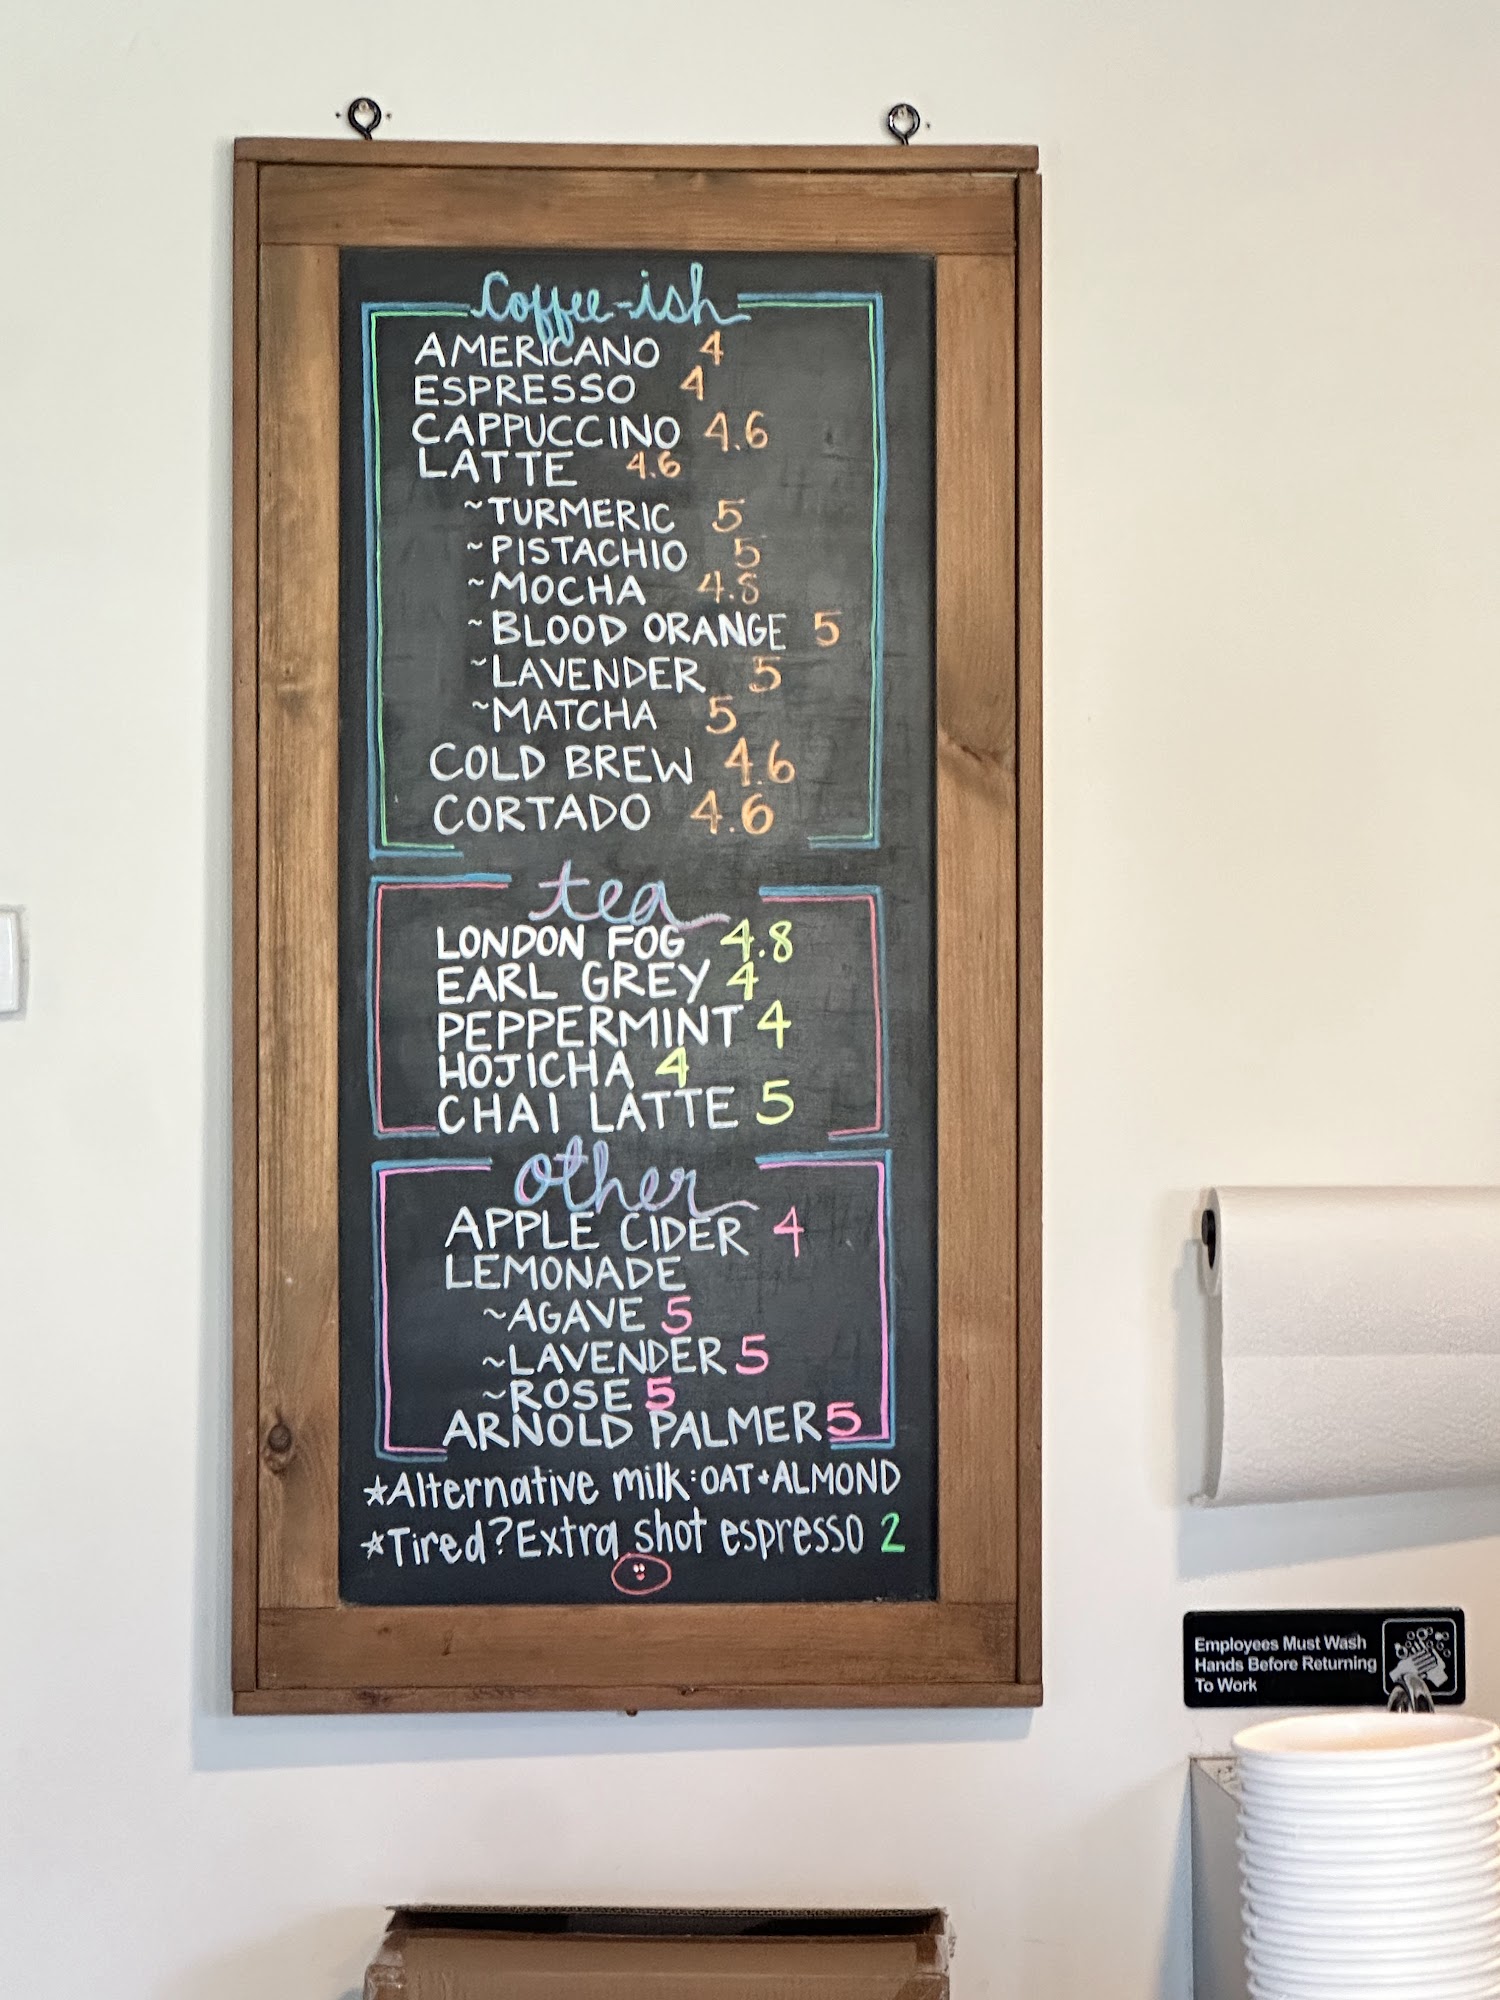 Coffee-ish
AMERICANO 4
ESPRESSO 4
CAPPUCCINO 4.6
LATTE 4.6
~TURMERIC 5
~PISTACHIO 5
~MOCHA 4.8
~BLOOD ORANGE 5
~LAVENDER 5
~MATCHA 5
COLD BREW 4.6
CORTADO 4.6
tea
LONDON FOG 4.8
EARL GREY 4
PEPPERMINT 4
HOJICHA 4
CHAI LATTE 5
other
APPLE CIDER 4
LEMONADE
~AGAVE 5
~LAVENDER 5
~ROSE 5
ARNOLD PALMER 5
*Alternative milk: OAT + ALMOND
*Tired? Extra shot espresso 2
Employees Must Wash
Hands Before Returning
To Work